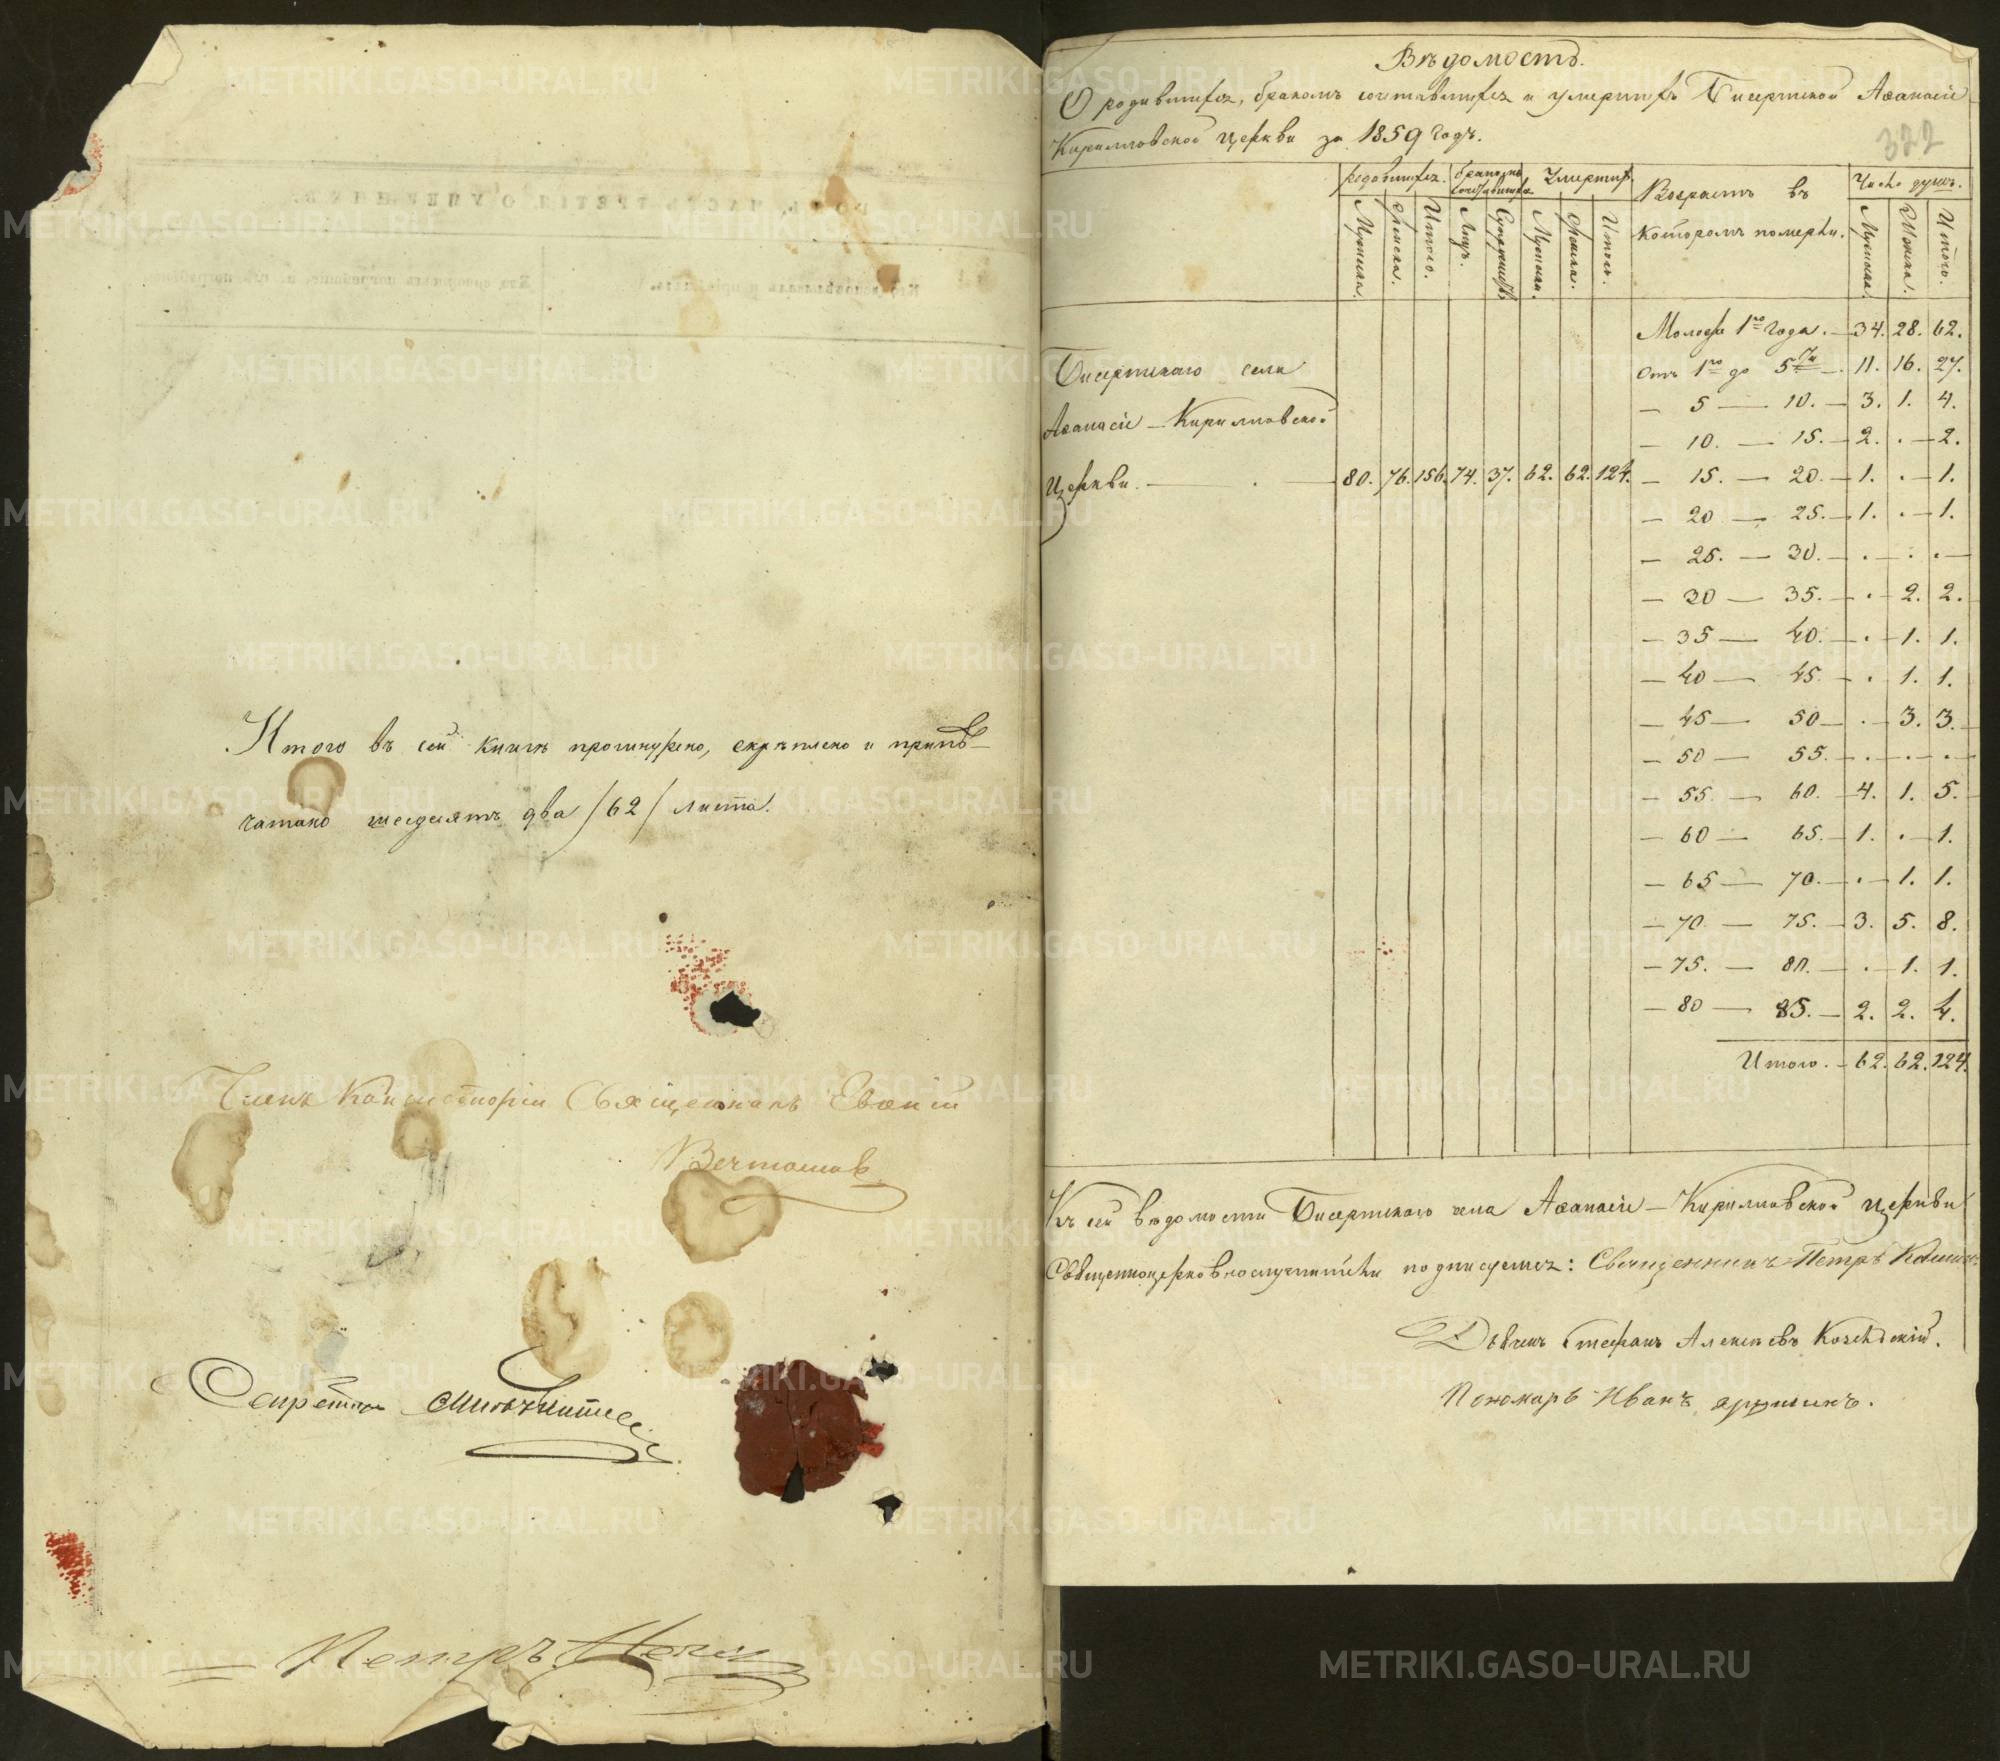 Итого въ сей книгѣ прошнурено, скрѣплено и припѣ-
чатано шесдесятъ два /62/ листа.
Членъ Консисторіи Священникъ
Секретарь
Петръ
Вѣдомость.
О родившихся, бракомъ сочетавшихся и умершихъ Бисертской Аѳанасіе
Кирилловской церкви за 1859 годъ.
322
родившихся. бракомъ сочетавшихся Умерших. Возрастъ въ которомъ померли. Число душъ.
Мужеска. Женска. Итого. Лицъ. Супружествъ Мужска. Женска. Итого. Мужеска. Женска. Итого.
Молодѣ 1го года. — 34. 28. 62.
Отъ 1го до 5ти — 11. 16. 27.
— 5 — 10. — 3. 1. 4.
— 10. — 15. — 2. . — 2.
— 15. — 20. — 1. . — 1.
— 20 — 25. — 1. . — 1.
— 25. — 30. — . — . . —
— 30 — 35. — . — 2. 2.
— 35 — 40. — . — 1. 1.
— 40 — 45. — . 1. 1.
— 45 — 50 — . — 3. 3.
— 50 — 55. — . — . — . —
— 55. — 60. — 4. 1. 5.
— 60 — 65. — 1. . — 1.
— 65 — 70. — . — 1. 1.
— 70 — 75. — 3. 5. 8.
— 75. — 80. — . — 1. 1.
— 80 — 85. — 2. 2. 4.
Итого. — 62. 62. 124.
Бисертскаго села
Аѳанасіе — Кирилловской
Церкви. — . — 80. 76. 156. 74. 37. 62. 62. 124.
Къ сей вѣдомости Бисертскаго села Аѳанасіе — Кирилловской церкви
Священноцерковнослужители подписуемся: Священникъ Петръ
Дьяконъ Стефанъ Алексѣевъ
Пономарь Иванъ
METRIKI.GASO-URAL.RU